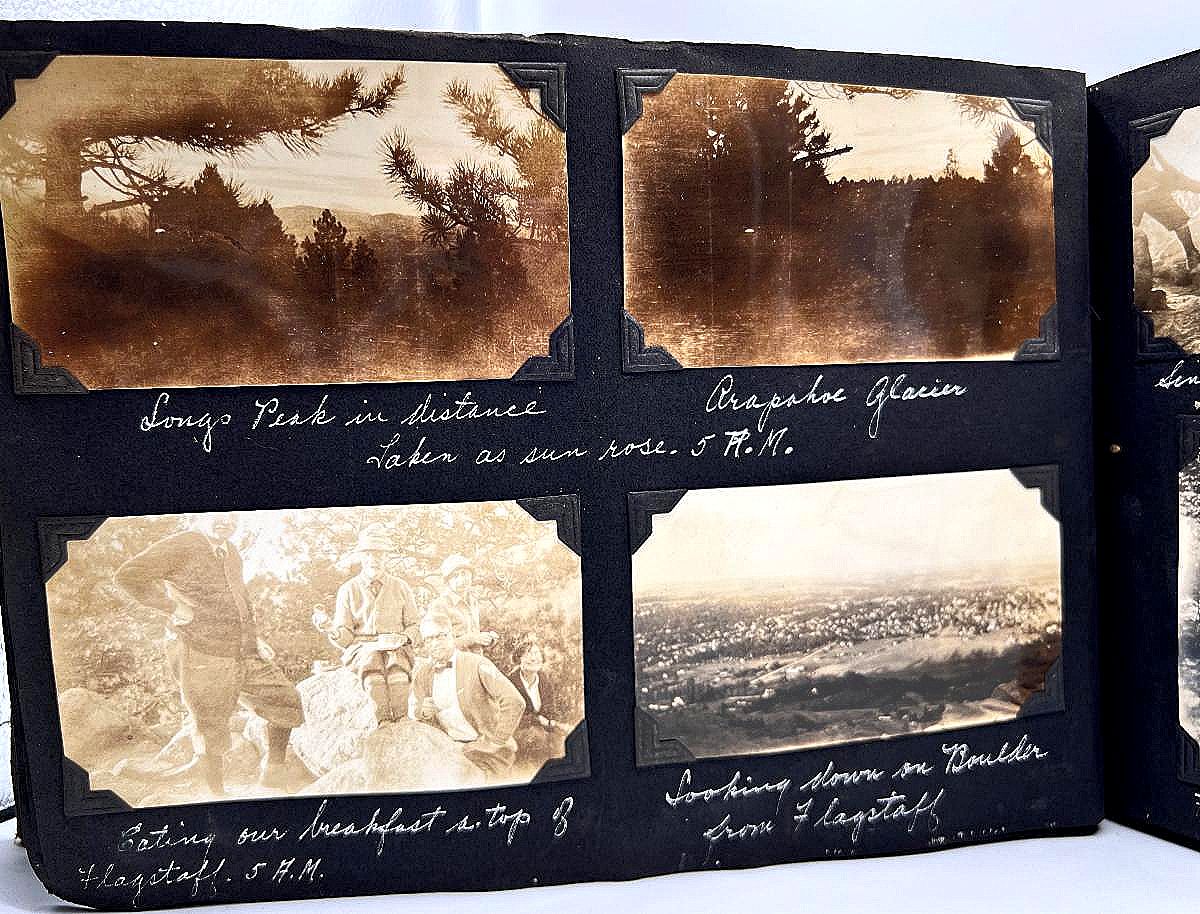 Longs Peak in distance
Arapahoe Glacier
Taken as sun rose. 5 A.M.
Eating our breakfast a.top of
Flagstaff. 5 A.M.
Looking down on Boulder
from Flagstaff